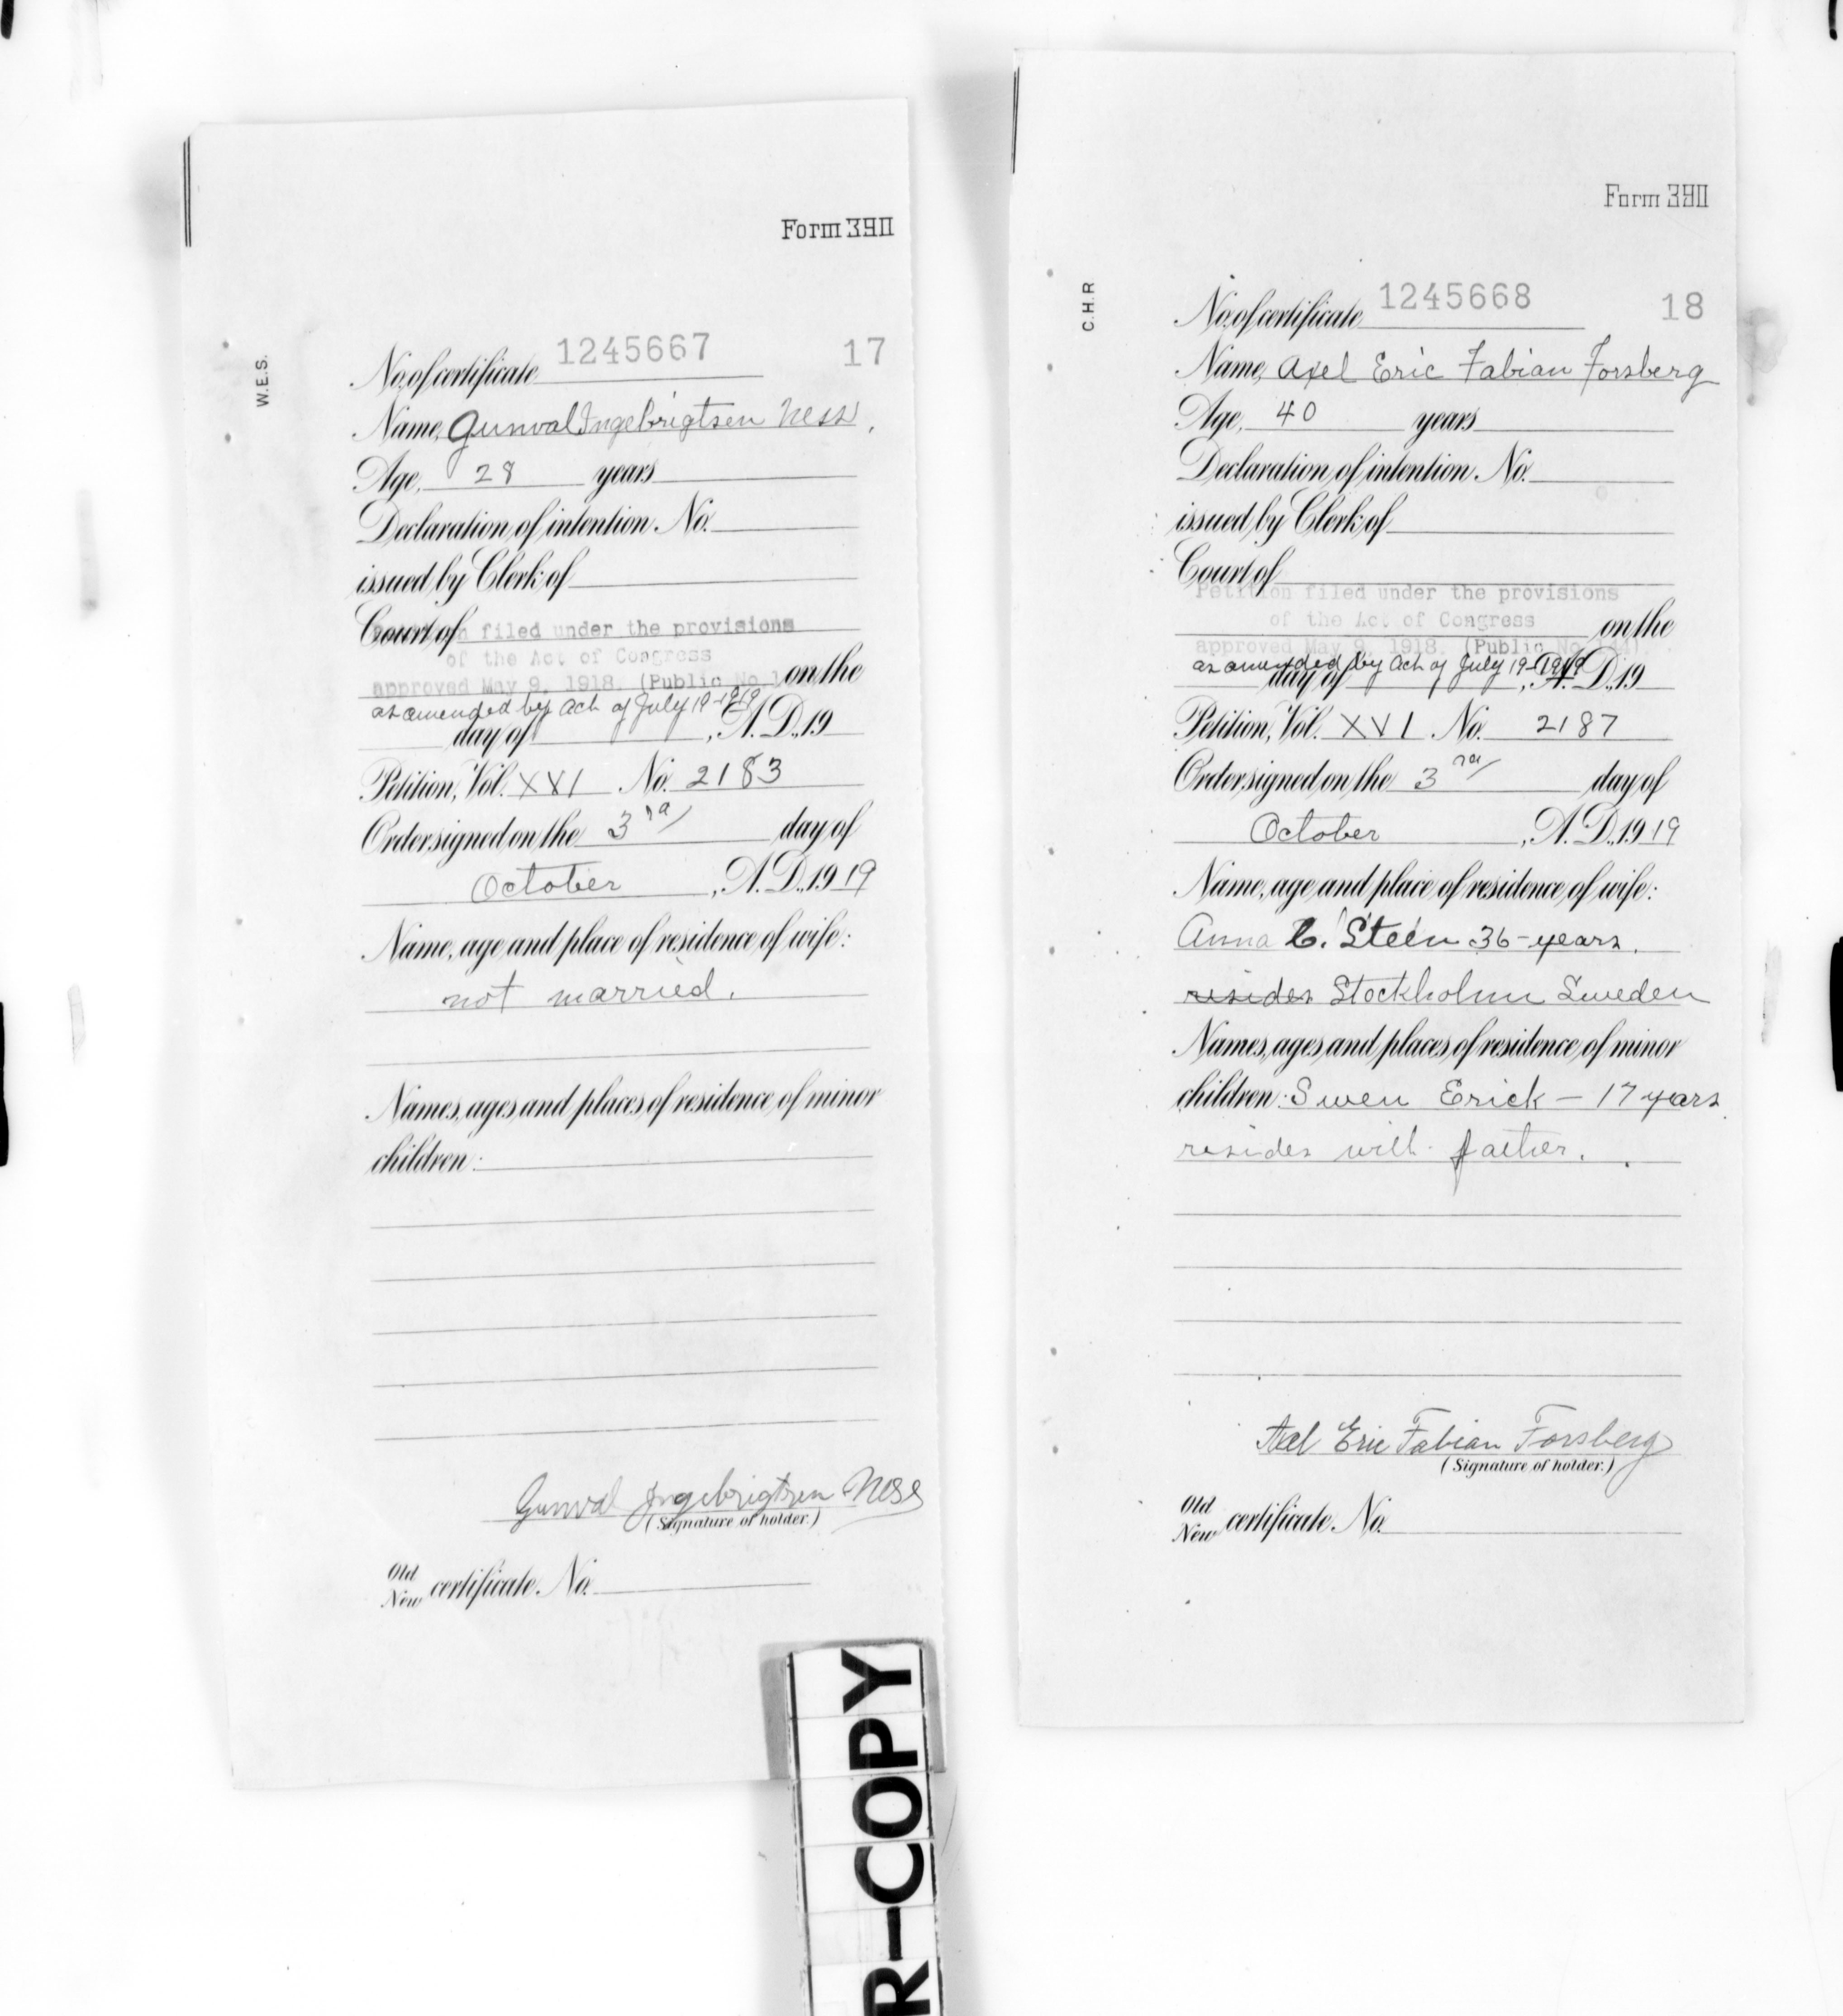 Form 390
W.E.S.
No. of certificate 1245667 17
Name, Gunval Ingebrigtsen Ness.
Age, 28 years
Declaration of intention No.
issued by Clerk of
Court of
filed under the provisions
of the Act of Congress
on the
approved May 9, 1918. (Public No.
as amended by Act of July 19-1919
day of , A. D., 19
Petition, Vol. XVI No. 2183
Order signed on the 3rd day of
October , A. D., 19 19
Name, age and place of residence of wife:
not married.
Names, ages and places of residence of minor
children:
Gunval Ingebrigtsen Ness
(Signature of holder.)
Old
New certificate No.
Form 390
C.H.R
No. of certificate 1245668 18
Name, Axel Eric Fabian Forsberg
Age, 40 years
Declaration of intention No.
issued by Clerk of
Court of
Petition filed under the provisions
of the Act of Congress
on the
approved May 9, 1918. (Public No.
as amended by Act of July 19-1919
day of , A. D., 19
Petition, Vol. XVI No. 2187
Order signed on the 3rd day of
October , A. D., 19 19
Name, age and place of residence of wife:
Anna C. Steen 36-years.
resides Stockholm Sweden
Names, ages and places of residence of minor
children: Swen Erick – 17 years
resides with father.
Axel Eric Fabian Forsberg
(Signature of holder.)
Old
New certificate No.
R-COPY